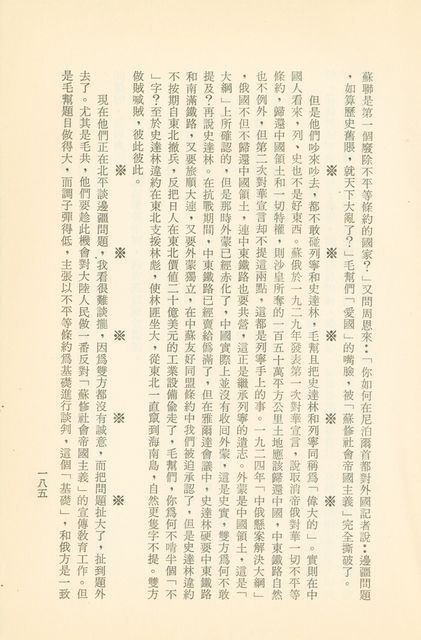 蘇聯是第一個廢除不平等條約的國家?」又問周恩來:「你如何在尼泊爾首都對外國記者說:邊疆問題
,如算歷史舊賬,就天下大亂了?」毛幫們「愛國」的嘴臉,被「蘇修社會帝國主義」完全撕破了。
※ ※ ※ ※ ※
但是他們吵來吵去,都不敢碰列寧和史達林,毛幫且把史達林和列寧同稱爲「偉大的」。實則在中
國人看來,列、史也不是好東西。蘇俄於一九二九年發表第一次對華宣言,說取消帝俄對華一切不平等
條約,歸還中國領土和一切特權,則沙皇所奪的一百五十萬平方公里土地應該歸還中國,中東鐵路自然
也不例外,但第二次對華宣言却不提這兩點,這都是列寧手上的事。一九二四年「中俄懸案解決大綱」
,俄國不但不歸還中國領土,連中東鐵路也要共營,這正是繼承列寧的遺志。外蒙是中國領土,這是「
大綱」上所確認的,但是那時外蒙已經赤化了,中國實際上並沒有收回外蒙,這是史實,雙方爲何不敢
提及?再說史達林。在抗戰期間,中東鐵路已經賣給僞滿了,但在雅爾達會議中,史達林硬要中東鐵路
和南滿鐵路,又要旅順大連,又要外蒙獨立,在中蘇友好同盟條約中我們被迫承認了,但是史達林違約
不按期自東北撤兵,反把日人在東北價值二十億美元的工業設備偷走了,毛幫們,你爲何不啃半個「不
」字?至於史達林違約在東北支援林彪,使林匪坐大,從東北一直竄到海南島,自然更隻字不提。雙方
做賊喊賊,彼此彼此。
※ ※ ※ ※ ※
現在他們正在北平談邊疆問題,我看很難談攏,因爲雙方都沒有誠意,而把問題扯大了,扯到題外
去了。尤其是毛共,他們要趁此機會對大陸人民做一番反對「蘇修社會帝國主義」的宣傳教育工作。但
是毛幫題目做得大,而調子彈得低,主張以不平等條約爲基礎進行談判,這個「基礎」,和俄方是一致
一八五